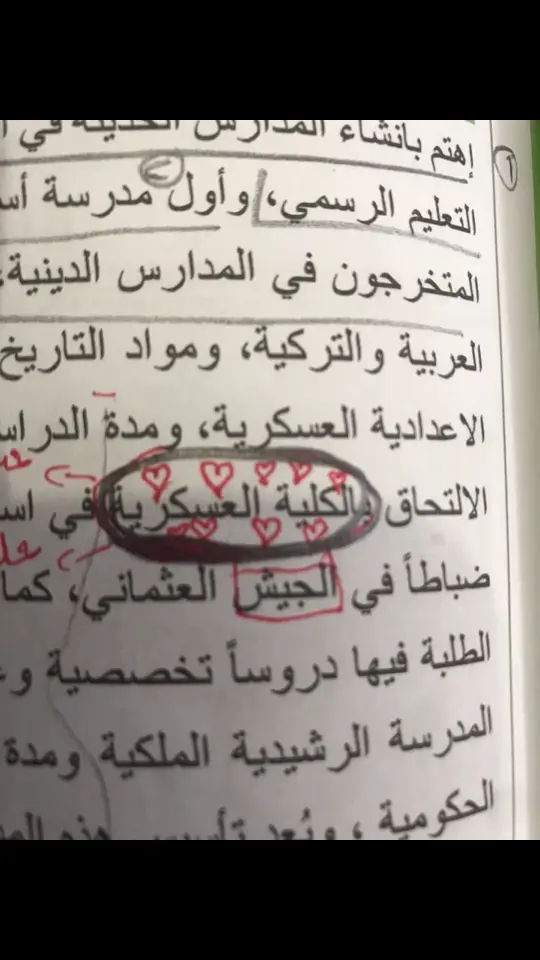 إهتم بانشاء المدارس الحديثة في
التعليم الرسمي، وأول مدرسة
المتخرجون في المدارس الدينية،
العربية والتركية، ومواد التاريخ
الاعدادية العسكرية، ومدة
الالتحاق بالكلية العسكرية في
ضباطاً في الجيش العثماني، كما
الطلبة فيها دروساً تخصصية
المدرسة الرشيدية الملكية ومدة
الحكومية ، ويُعد تأسيس هذه